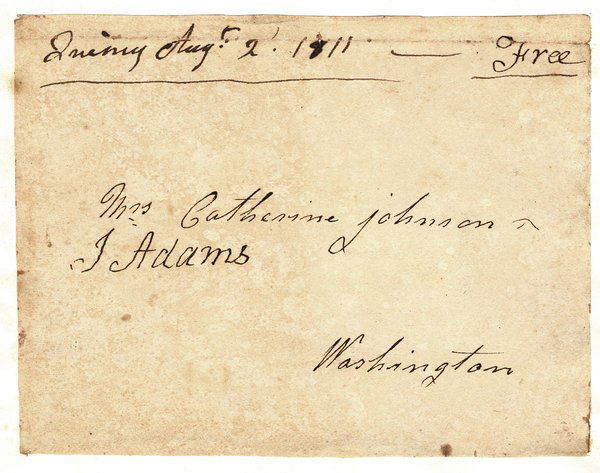 Quincy Augst 2d. 1811 — Free
Mrs Catherine Johnson
J Adams
Washington